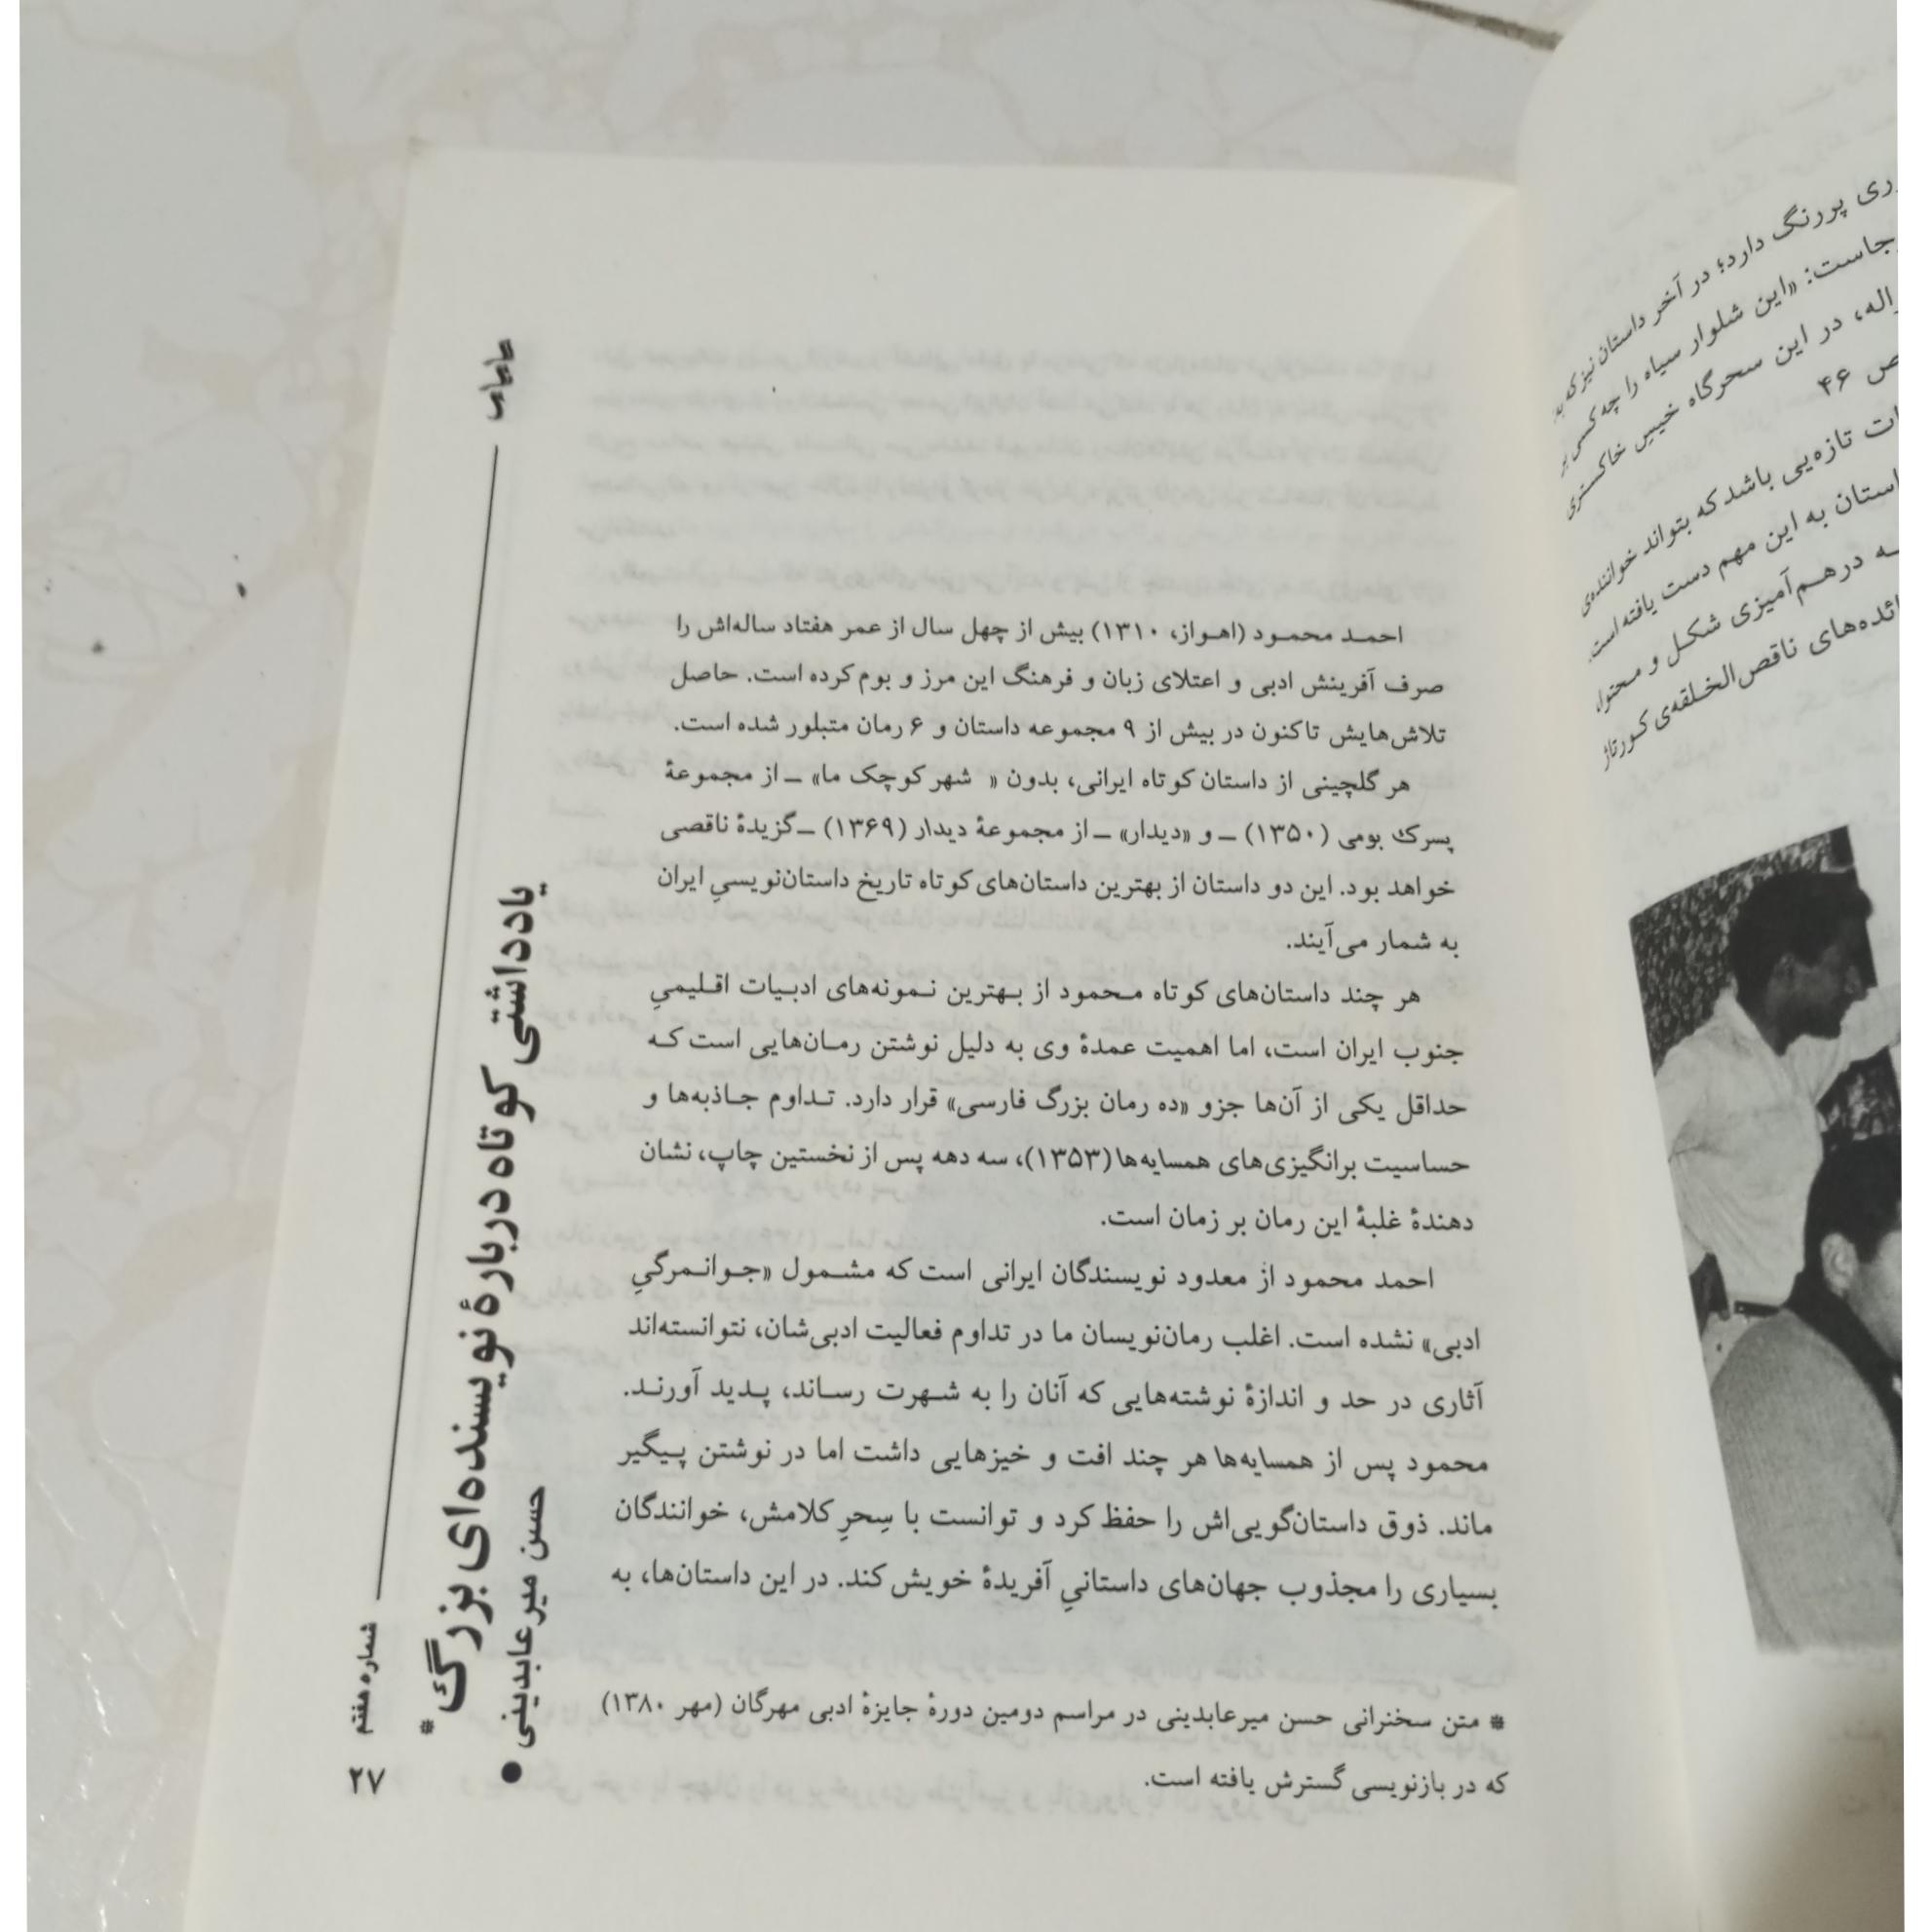 یادداشتی کوتاه دربارهٔ نویسنده‌ای بزرگ*
● حسن میرعابدینی
احمـد محمـود (اهـواز، ۱۳۱۰) بیش از چهل سال از عمر هفتاد ساله‌اش را
صرف آفرینش ادبی و اعتلای زبان و فرهنگ این مرز و بوم کرده است. حاصل
تلاش‌هایش تاکنون در بیش از ۹ مجموعه داستان و ۶ رمان متبلور شده است.
هر گلچینی از داستان کوتاه ایرانی، بدون « شهر کوچک ما» ـ از مجموعهٔ
پسرک بومی (۱۳۵۰) ـ و «دیدار» ـ از مجموعهٔ دیدار (۱۳۶۹) ـ گزیدهٔ ناقصی
خواهد بود. این دو داستان از بهترین داستان‌های کوتاه تاریخ داستان‌نویسیِ ایران
به شمار می‌آیند.
هر چند داستان‌های کوتاه مـحمود از بـهترین نـمونه‌های ادبـیات اقـلیمیِ
جنوب ایران است، اما اهمیت عمدهٔ وی به دلیل نوشتن رمـان‌هایی است کـه
حداقل یکی از آن‌ها جزو «ده رمان بزرگ فارسی» قرار دارد. تـداوم جـاذبه‌ها و
حساسیت برانگیزی‌های همسایه‌ها (۱۳۵۳)، سه دهه پس از نخستین چاپ، نشان
دهندهٔ غلبهٔ این رمان بر زمان است.
احمد محمود از معدود نویسندگان ایرانی است که مشـمول «جـوانـمرگیِ
ادبی» نشده است. اغلب رمان‌نویسان ما در تداوم فعالیت ادبی‌شان، نتوانسته‌اند
آثاری در حد و اندازهٔ نوشته‌هایی که آنان را به شـهرت رسـاند، پـدید آورنـد.
محمود پس از همسایه‌ها هر چند افت و خیزهایی داشت اما در نوشتن پـیگیر
ماند. ذوق داستان‌گویی‌اش را حفظ کرد و توانست با سِحرِ کلامش، خوانندگان
بسیاری را مجذوب جهان‌های داستانیِ آفریدهٔ خویش کند. در این داستان‌ها، به
* متن سخنرانی حسن میرعابدینی در مراسم دومین دورهٔ جایزهٔ ادبی مهرگان (مهر ۱۳۸۰)
که در بازنویسی گسترش یافته است.
شماره هفتم
۲۷
پررنگ دارد؛ در آخر داستان نیز که
«این شلوار سیاه را چه کسی
در این سحرگاه خیسِ خاکستری
ص ۴۶
تازه‌یی باشد که بتواند خواننده‌ی
به این مهم دست یافته است.
درهـم‌آمیزی شکـل و مـحتوا،
ناقص‌الخـلقه‌ی